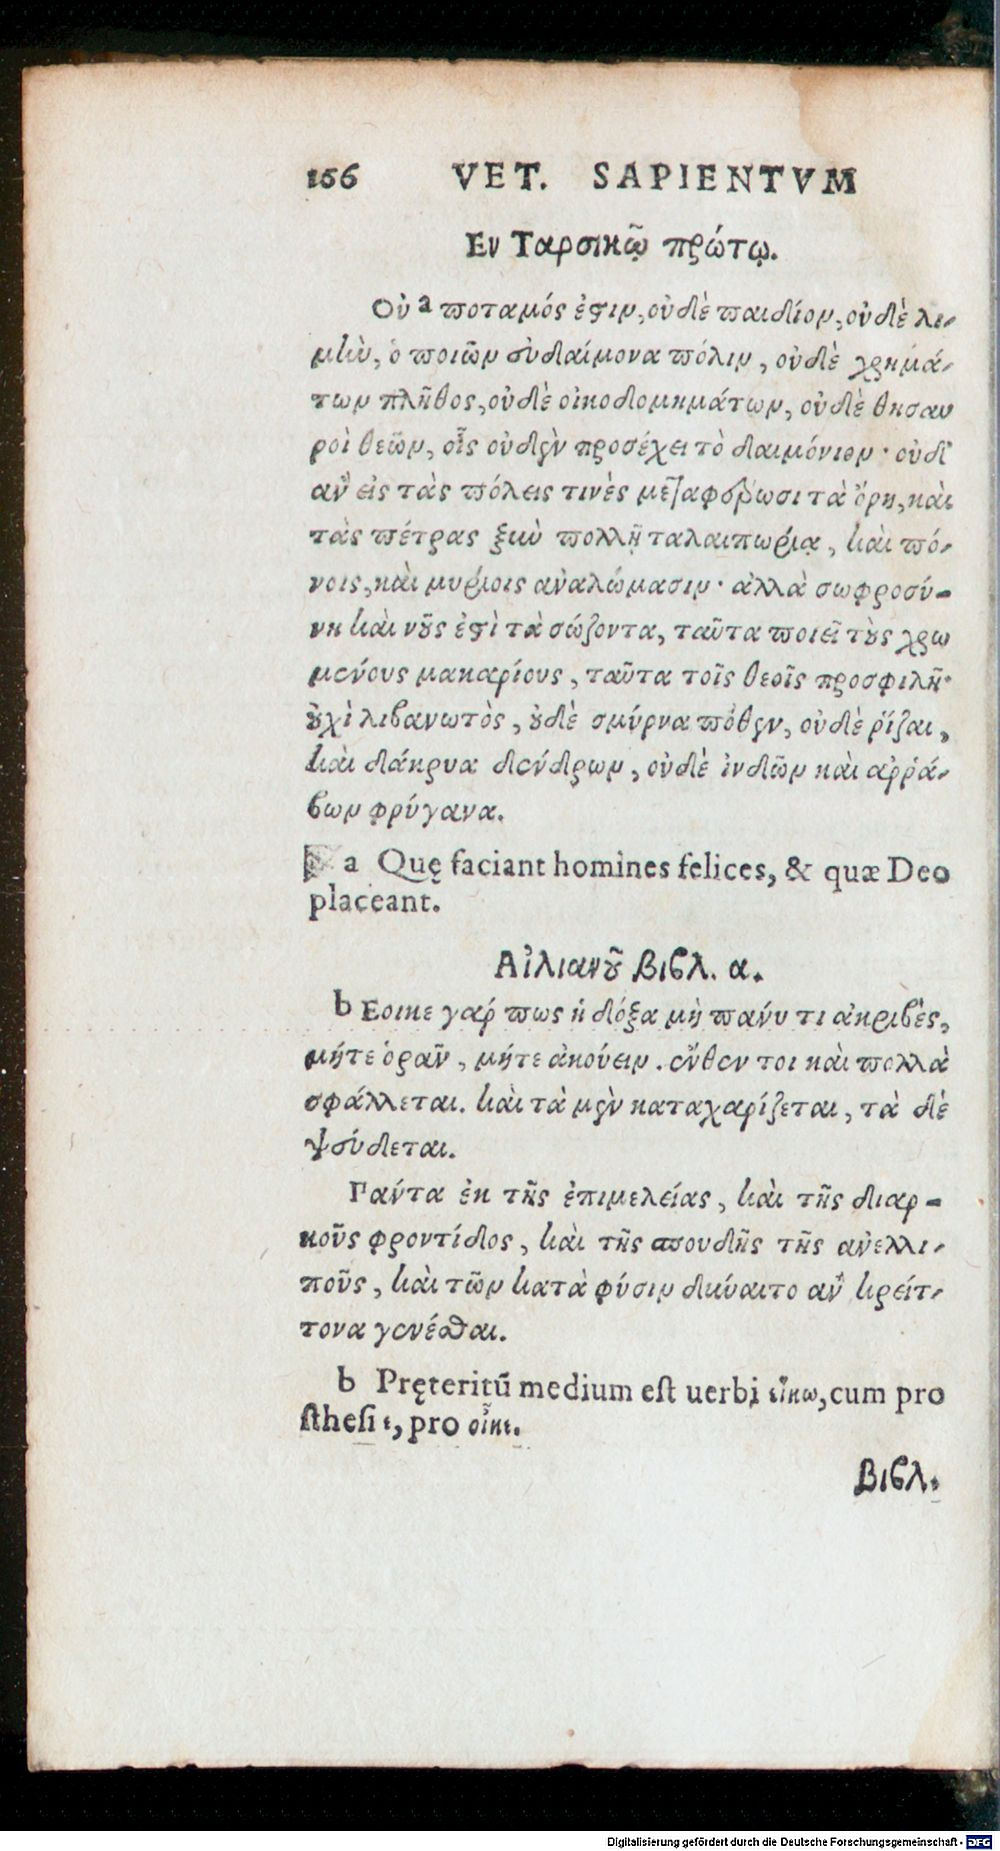 166 VET. SAPIENTVM
Εν Ταρσικῷ πρώτῳ.
Οὐ a ποταμός ἐστιν, οὐδὲ παιδίον, οὐδὲ λι-
μὴν, ὁ ποιῶν εὐδαίμονα πόλιν, οὐδὲ χρημά-
των πλῆθος, οὐδὲ οἰκοδομημάτων, οὐδὲ θησαυ
ροὶ θεῶν, οἷς οὐδὲν προσέχει τὸ δαιμόνιον· οὐδ'
ἀν εἰς τὰς πόλεις τινὲς μεταφέρωσι τὰ ὄρη, καὶ
τὰς πέτρας ξὺν πολλῇ ταλαιπωρίᾳ, καὶ πό-
νοις, καὶ μυρίοις ἀναλώμασιν· ἀλλὰ σωφροσύ-
νη καὶ νοῦς ἐστὶ τὰ σώζοντα, ταῦτα ποιεῖ τοὺς χρω
μένους μακαρίους, ταῦτα τοῖς θεοῖς προσφιλῆ·
οὐχὶ λιβανωτὸς, οὐδὲ σμύρνα πόθεν, οὐδὲ ῥίζαι,
καὶ δάκρυα δένδρων, οὐδὲ ἰνδῶν καὶ ἀῤῥά-
βων φρύγανα.
a Quę faciant homines felices, & quæ Deo
placeant.
Αἰλιανοῦ βιβλ. α.
b Εοικε γαρ πως ἡ δόξα μὴ πανύ τι ἀκριβὲς,
μήτε ὁρᾶν, μήτε ἀκούειν. ἔνθεν τοι καὶ πολλὰ
σφάλλεται. καὶ τὰ μὲν καταχαρίζεται, τὰ δὲ
ψεύδεται.
Γαντα ἐκ τῆς ἐπιμελείας, καὶ τῆς διαρ-
κοῦς φροντίδος, καὶ τῆς σπουδῆς τῆς ἀνελλι-
ποῦς, καὶ τῶν κατὰ φύσιν δύναιτο ἀν κρείτ-
τονα γενέσθαι.
b Pręteritũ medium est uerbi εἴκω, cum pro
sthesi ε, pro οἶκε.
βιβλ.
Digitalisierung gefördert durch die Deutsche Forschungsgemeinschaft - DFG